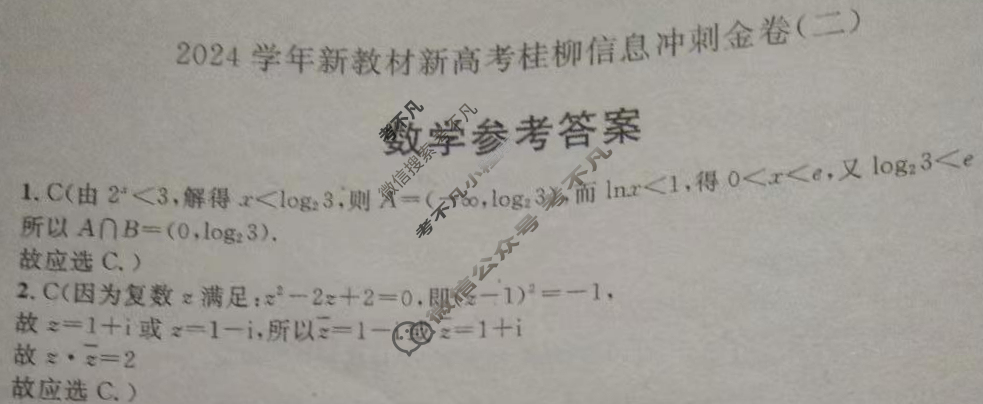 2024 学年新教材新高考桂柳信息冲刺金卷(二)
数学参考答案
1. C(由 2ˣ<3,解得 x<log₂3,则 A=(-∞,log₂3),而 lnx<1,得 0<x<e,又 log₂3<e
所以 A∩B=(0,log₂3).
故应选 C.)
2. C(因为复数 z 满足:z²-2z+2=0,即(z-1)²=-1,
故 z=1+i 或 z=1-i,所以 z̅=1-i或 z̅=1+i
故 z·z̅=2
故应选 C.)
考不凡
微信搜索 考不凡
考不凡小
微信公众号 考不凡